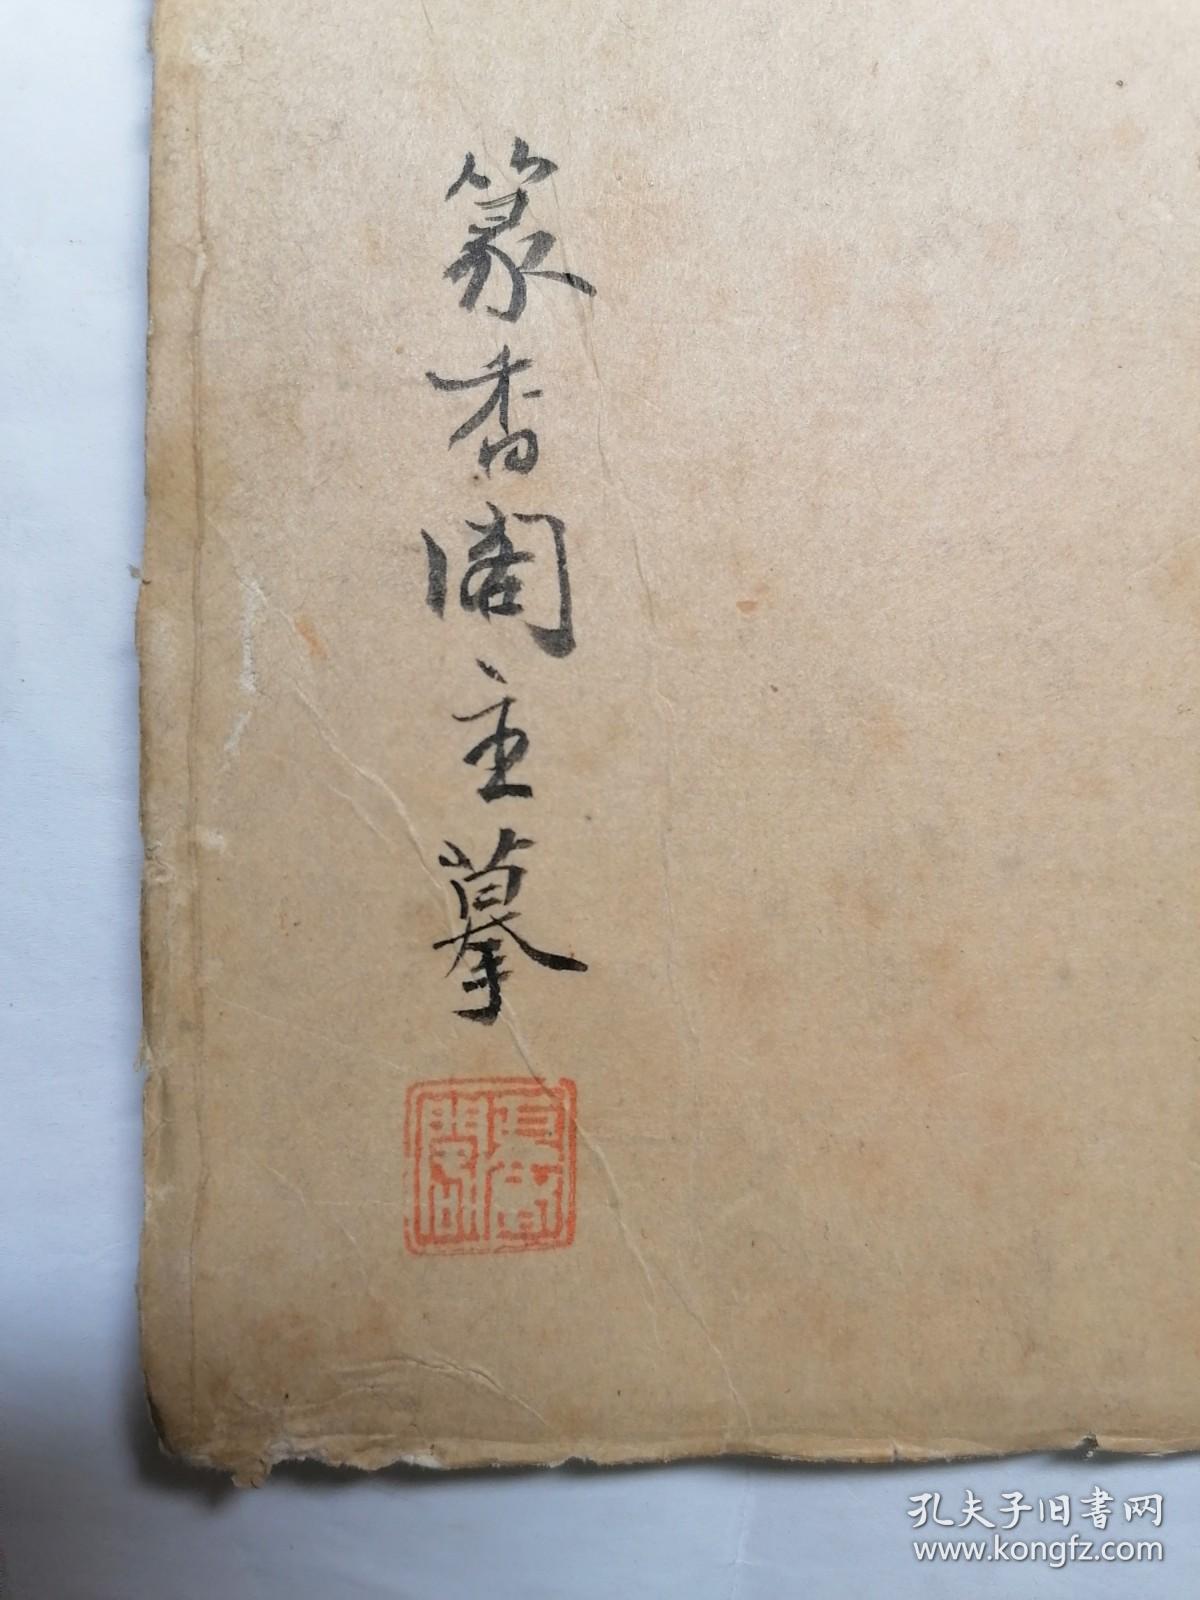 篆香阁主摹
孔夫子旧书网
www.kongfz.com